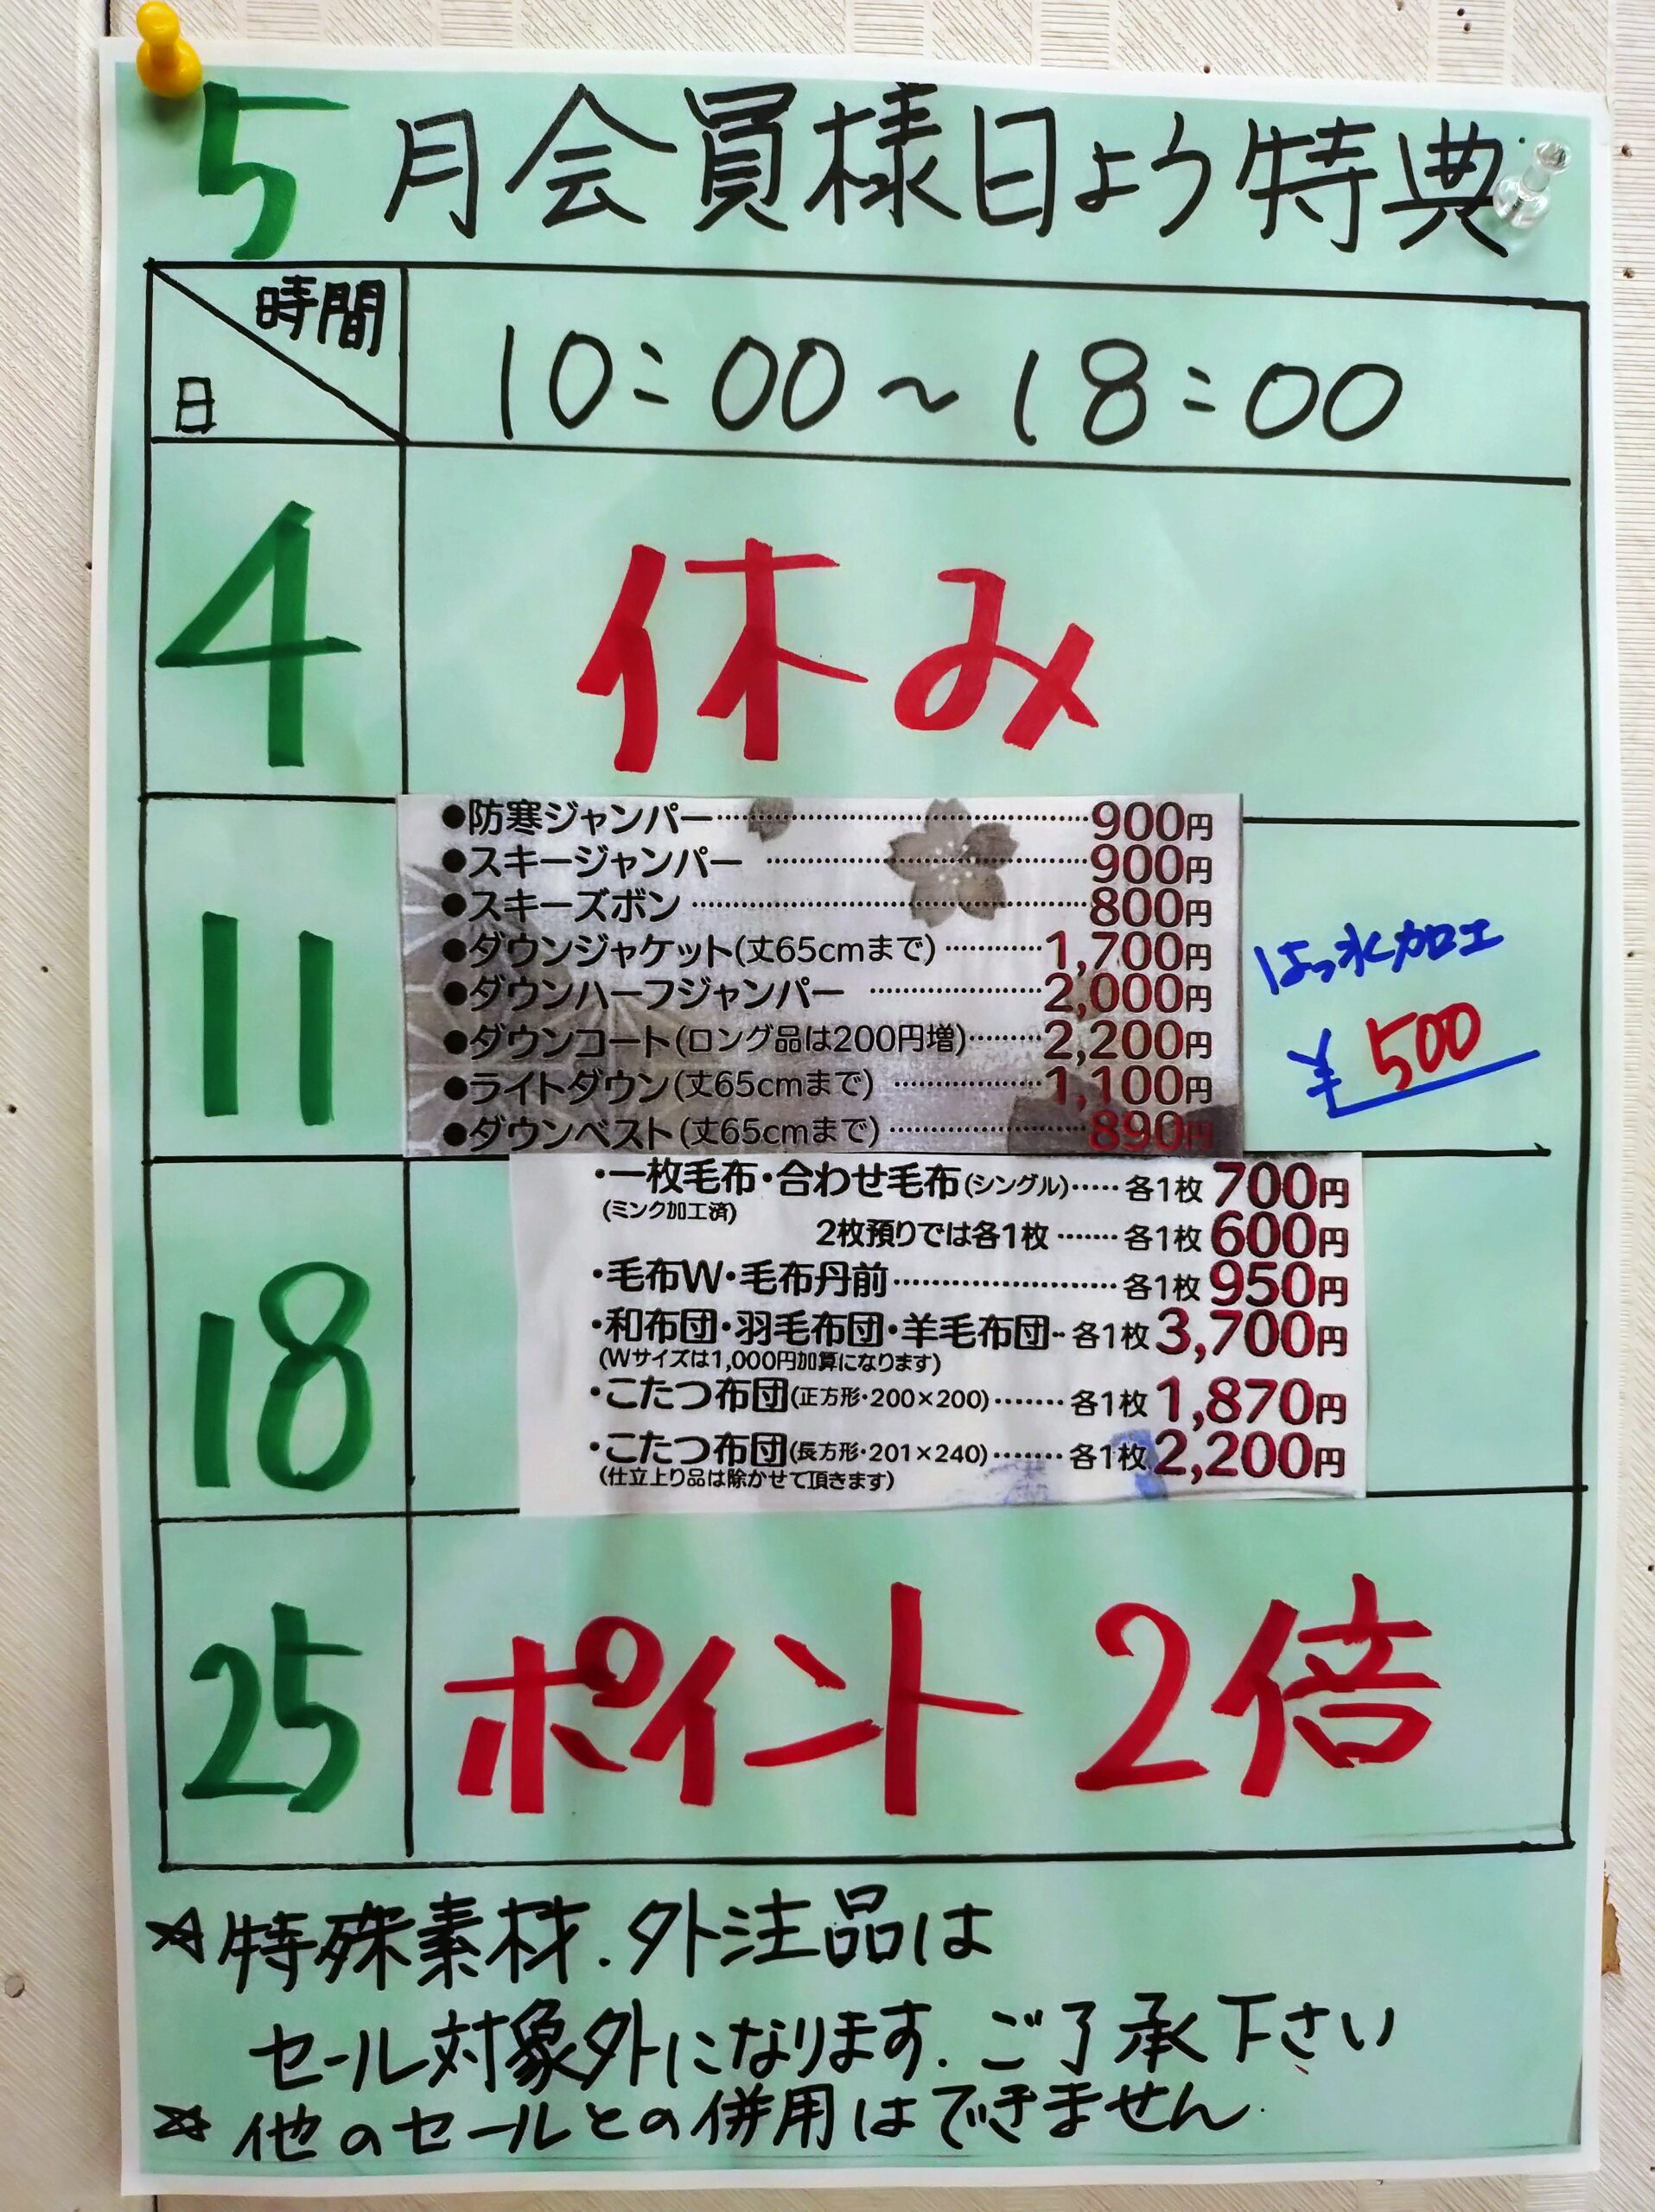 5月会員様日よう特典
時間
日
10:00~18:00
4
休み
11
●防寒ジャンパー……900円
●スキージャンパー……900円
●スキーズボン……800円
●ダウンジャケット(丈65cmまで)……1,700円
●ダウンハーフジャンパー……2,000円
●ダウンコート(ロング品は200円増)……2,200円
●ライトダウン(丈65cmまで)……1,100円
●ダウンベスト(丈65cmまで)……890円
はっ水加工
¥500
18
・一枚毛布・合わせ毛布(シングル)……各1枚700円
(ミンク加工済)
2枚預りでは各1枚……各1枚600円
・毛布W・毛布丹前……各1枚950円
・和布団・羽毛布団・羊毛布団…各1枚3,700円
(Wサイズは1,000円加算になります)
・こたつ布団(正方形・200×200)……各1枚1,870円
・こたつ布団(長方形・201×240)……各1枚2,200円
(仕立上り品は除かせて頂きます)
25
ポイント2倍
☆特殊素材.外注品は
セール対象外になります.ご了承下さい
☆他のセールとの併用はできません.